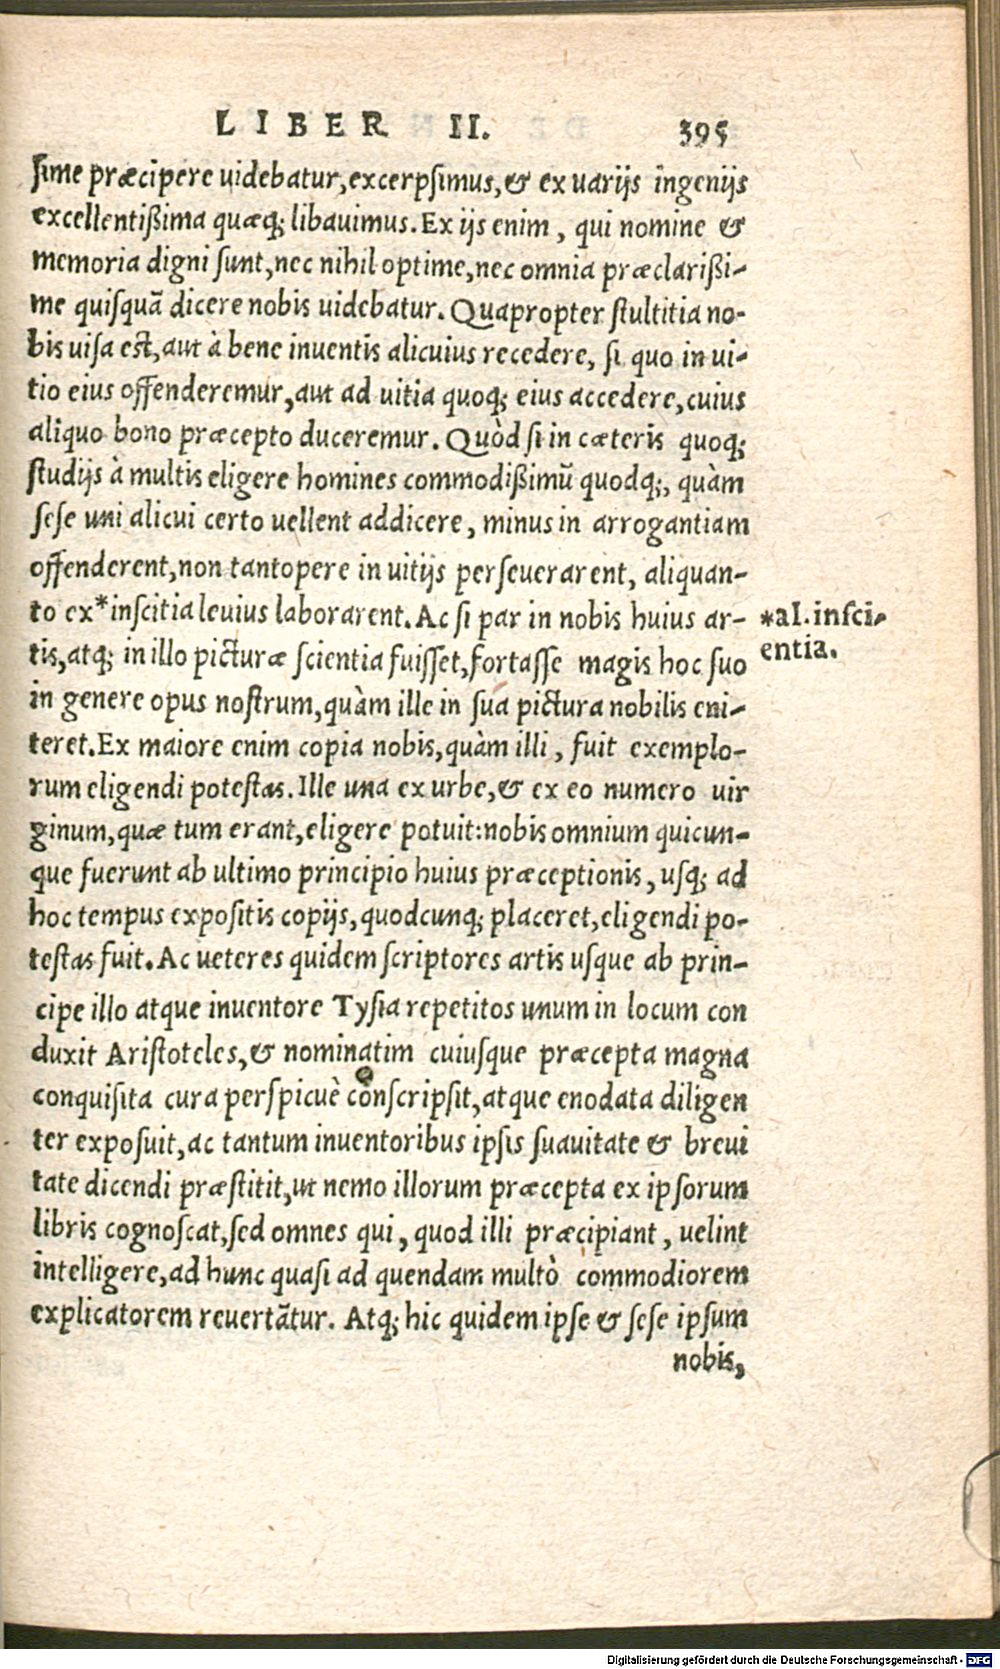 LIBER II. 395
ſime præcipere uidebatur, excerpſimus, & ex uarijs ingenijs
excellentißima quæq; libauimus. Ex ijs enim, qui nomine &
memoria digni ſunt, nec nihil optime, nec omnia præclarißi-
me quiſquã dicere nobis uidebatur. Quapropter ſtultitia no-
bis uiſa eſt, aut à bene inuentis alicuius recedere, ſi quo in ui-
tio eius offenderemur, aut ad uitia quoq; eius accedere, cuius
aliquo bono præcepto duceremur. Quòd ſi in cæteris quoq;
ſtudijs à multis eligere homines commodißimũ quodq;, quàm
ſeſe uni alicui certo uellent addicere, minus in arrogantiam
offenderent, non tantopere in uitijs perſeuerarent, aliquan-
to ex *inſcitia leuius laborarent. Ac ſi par in nobis huius ar-
*al. inſci-
entia.
tis, atq; in illo picturæ ſcientia fuiſſet, fortaſſe magis hoc ſuo
in genere opus noſtrum, quàm ille in ſua pictura nobilis eni-
teret. Ex maiore enim copia nobis, quàm illi, fuit exemplo-
rum eligendi poteſtas. Ille una ex urbe, & ex eo numero uir
ginum, quæ tum erant, eligere potuit: nobis omnium quicun-
que fuerunt ab ultimo principio huius præceptionis, uſq; ad
hoc tempus expoſitis copijs, quodcunq; placeret, eligendi po-
teſtas fuit. Ac ueteres quidem ſcriptores artis uſque ab prin-
cipe illo atque inuentore Tyſia repetitos unum in locum con
duxit Ariſtoteles, & nominatim cuiuſque præcepta magna
conquiſita cura perſpicuè conſcripſit, atque enodata diligen
ter expoſuit, ac tantum inuentoribus ipſis ſuauitate & breui
tate dicendi præſtitit, ut nemo illorum præcepta ex ipſorum
libris cognoſcat, ſed omnes qui, quod illi præcipiant, uelint
intelligere, ad hunc quaſi ad quendam multò commodiorem
explicatorem reuertãtur. Atq; hic quidem ipſe & ſeſe ipſum
nobis,
Digitalisierung gefördert durch die Deutsche Forschungsgemeinschaft - DFG